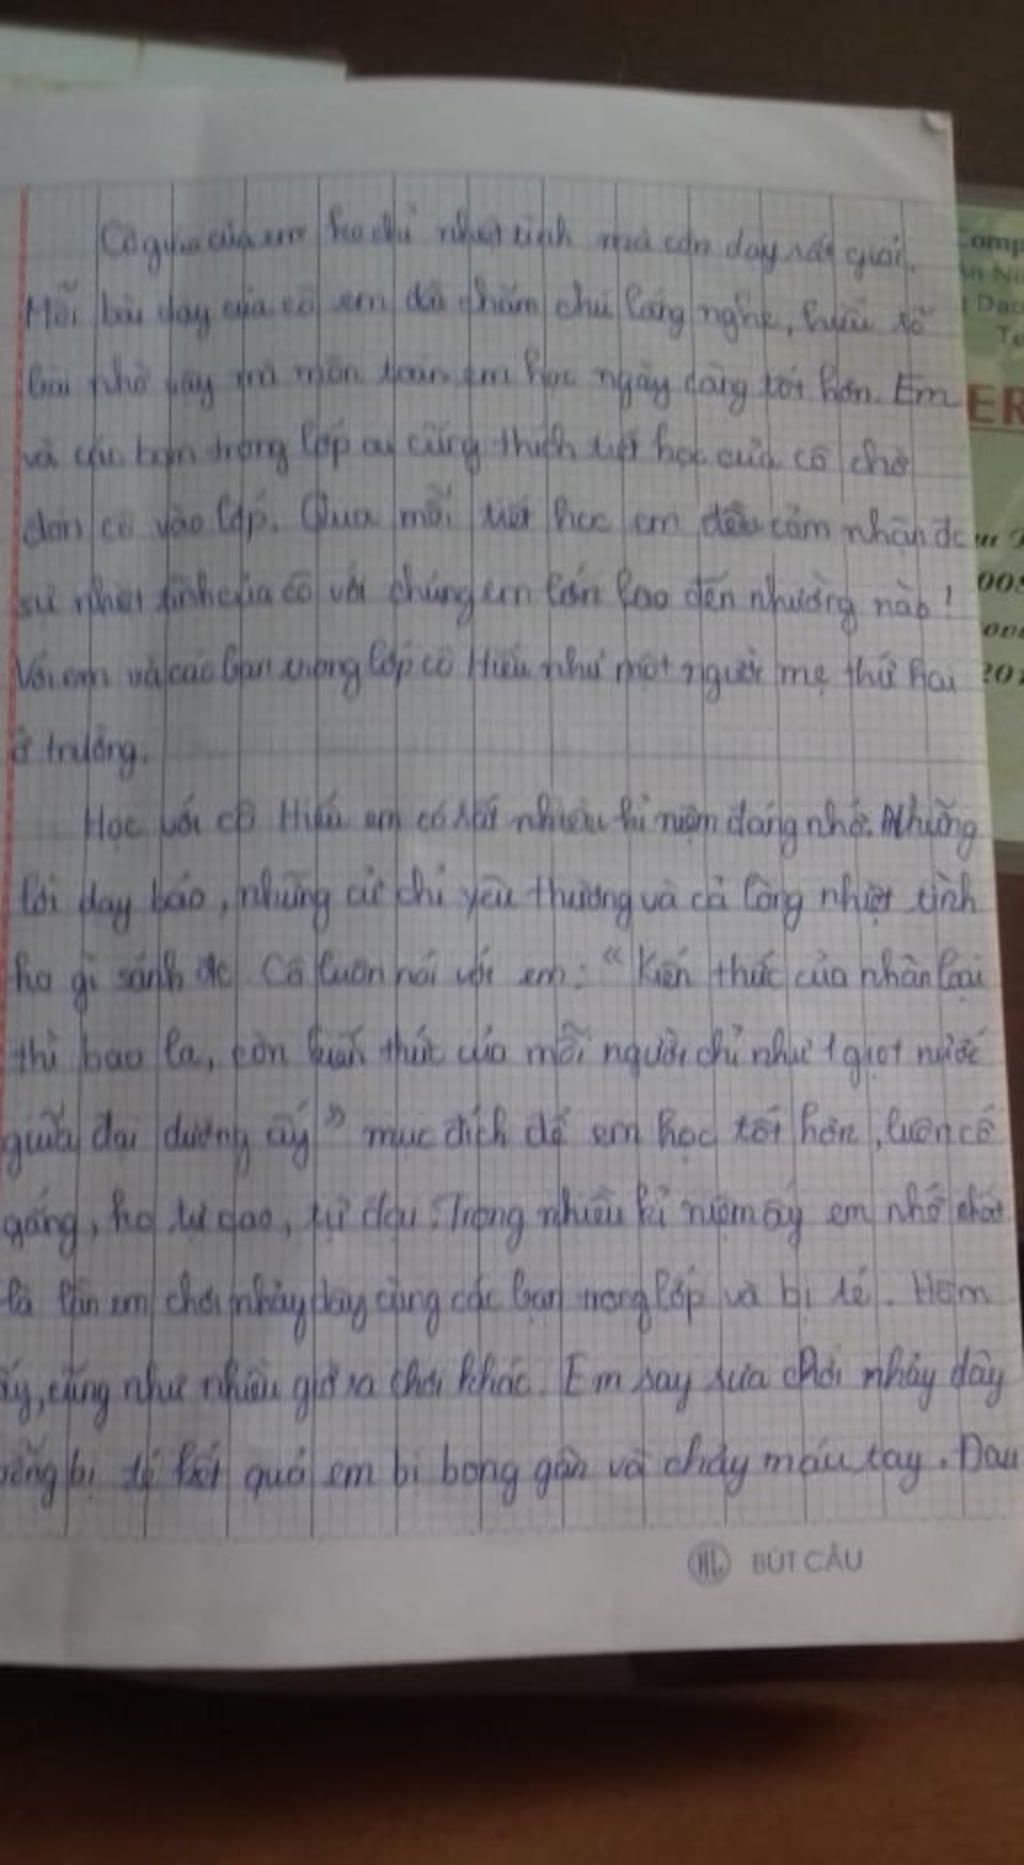 Cô giáo của em ko chỉ nhiệt tình mà còn dạy rất giỏi.
Mỗi bài dạy của cô em đã chăm chú lắng nghe, hiểu rõ
bài nhờ vậy mà môn toán em học ngày càng tốt hơn. Em
và các bạn trong lớp ai cũng thích tiết học của cô chờ
đón cô vào lớp. Qua mỗi tiết học em đều cảm nhận đc
sự nhiệt tình của cô với chúng em lớn lao đến nhường nào!
Với em và các bạn trong lớp cô Hiếu như một người mẹ thứ hai
ở trường.
Học với cô Hiếu em có rất nhiều kỉ niệm đáng nhớ. Những
lời dạy bảo, những cử chỉ yêu thương và cả lòng nhiệt tình
ko gì sánh đc Cô luôn nói với em: “Kiến thức của nhân loại
thì bao la, còn kiến thức của mỗi người chỉ như 1 giọt nước
giữa đại dương ấy” mục đích để em học tốt hơn, luôn cố
gắng, ko tự cao, tự đại. Trong nhiều kỉ niệm ấy em nhớ nhất
là lần em chơi nhảy dây cùng các bạn trong lớp và bị té. Hôm
ấy, cũng như nhiều giờ ra chơi khác. Em say sưa chơi nhảy dây
bỗng bị té kết quả em bị bong gân và chảy máu tay. Đau
HL BÚT CÂU
ER